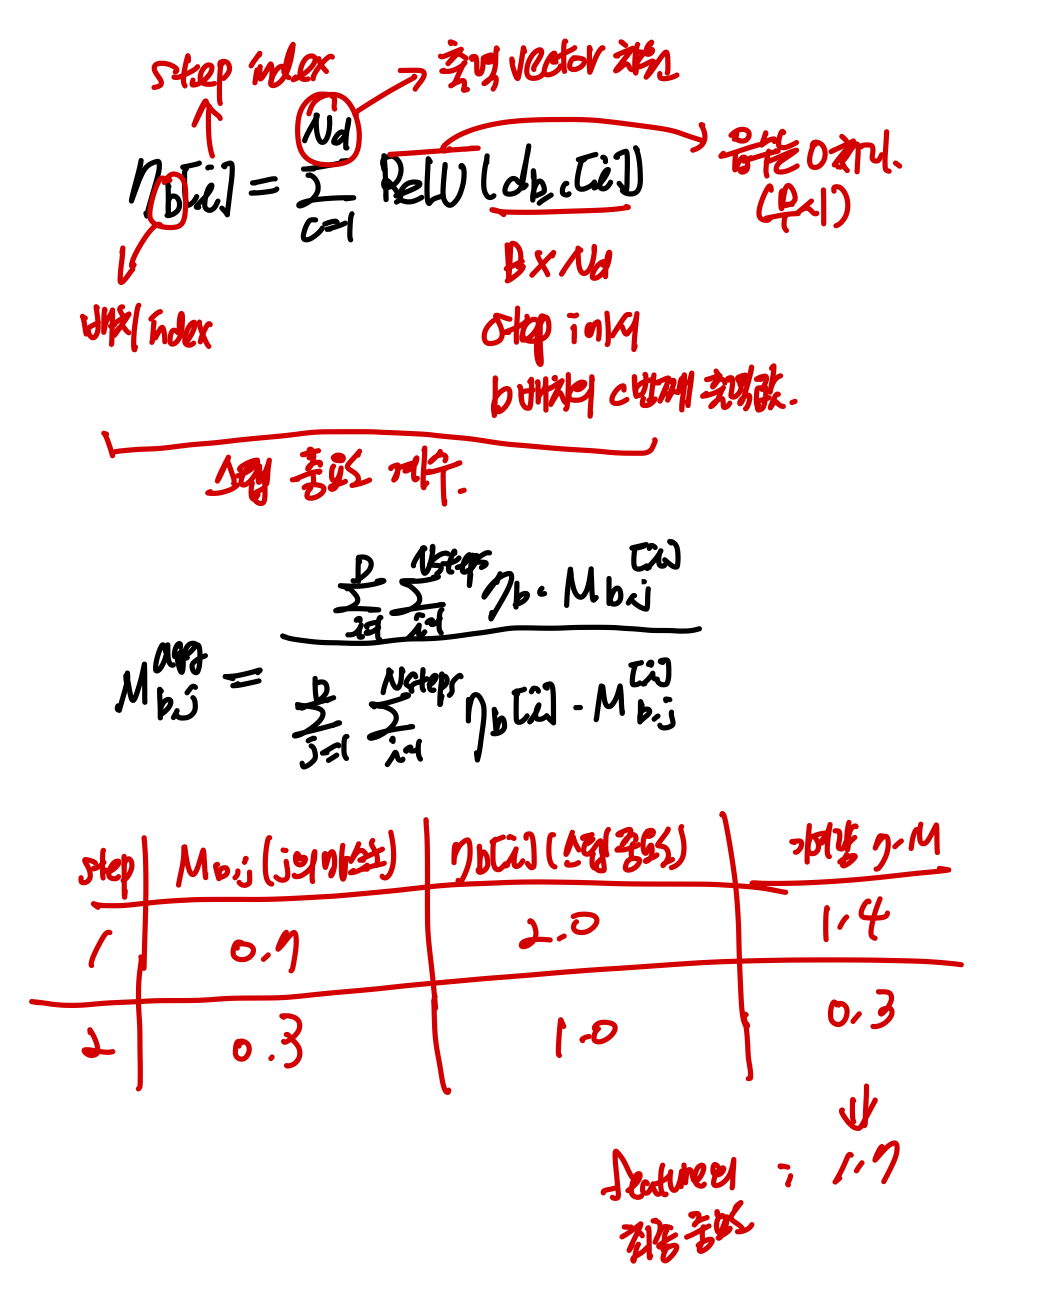 step index
출력 vector 차원
η_b[i] = Σ_{c=1}^{N_d} ReLU(d_{b,c}[i])
음수는 0처리.
(무시)
배치 index
B × Nd
step i에서
b배치의 c번째 출력값.
스텝 중요도 계수.
M_{b,j}^{agg} = \frac{Σ_{i=1}^{D} Σ_{i=1}^{Nsteps} η_b · M_{b,j}^{[i]}}{Σ_{j=1}^{D} Σ_{i=1}^{Nsteps} η_b[i] · M_{b,j}^{[i]}}
step | M_{b,j} (j의 마스크) | η_b[i] (스텝 중요도) | 기여량 η·M
1 | 0.7 | 2.0 | 1.4
2 | 0.3 | 1.0 | 0.3
feature의 : 1.7
최종 중요도